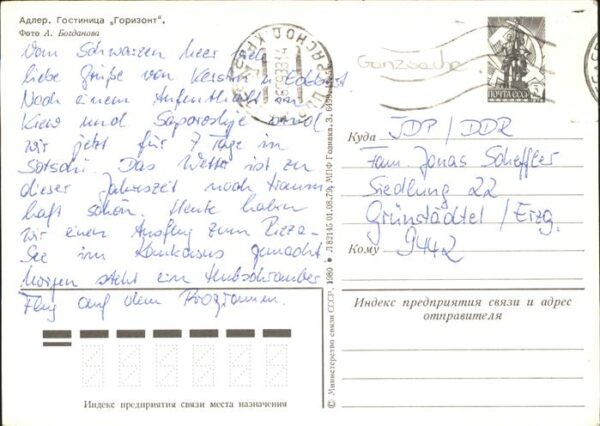 Адлер. Гостиница „Горизонт“.
Фото А. Богданова
Vom Schwarzen Meer viele
liebe Grüße von Kerstin u.
Nach einem Aufenthalt in
Kiew und Saporoshje sind
wir jetzt für 7 Tage in
Sotschi. Das Wetter ist zu
dieser Jahreszeit noch traum-
haft schön. Heute haben
wir einen Ausflug zum Rizza-
See im Kaukasus gemacht.
Morgen steht ein Hubschrauber
flug auf dem Programm.
Индекс предприятия связи места назначения
© Министерство связи СССР. 1980 • Л 82145 01.08.79. МПФ Гознака. З.
Ganzsache
ПОЧТА СССР
Куда
JDP / DDR
Fam. Jonas Scheffler
Siedlung 22
Grünstädtel / Erzg.
Кому
9442
Индекс предприятия связи и адрес
отправителя